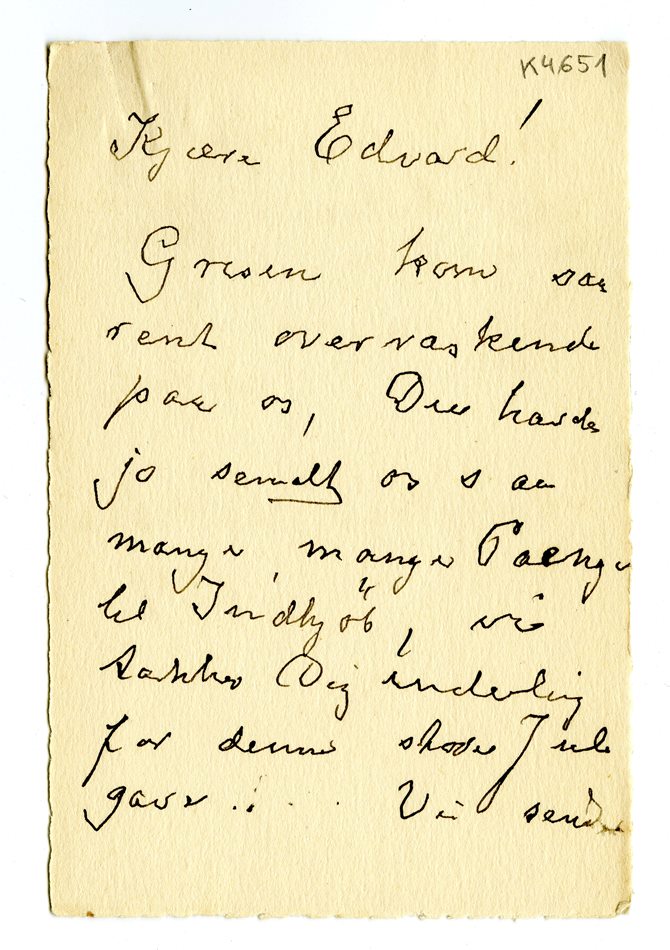 K4651
Kjære Edvard!
Grisen kom saa
rent overraskende
paa os, Du havde
jo sendt os saa
mange, mange Pænge
til Indkjöb, vi
takker Dig inderlig
for denne store Jule
gave ... Vi sender